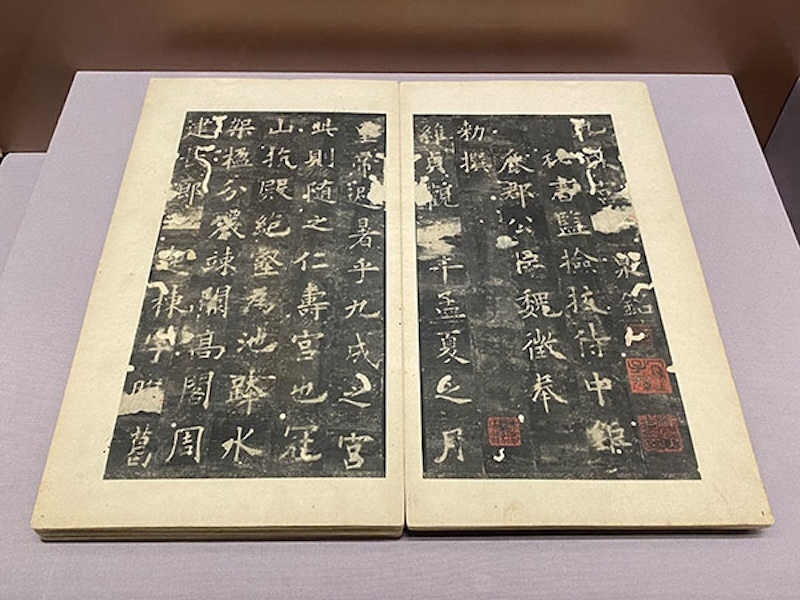 九泉銘
秘書監撿挍侍中鉅
鹿郡公臣魏徵奉
勅撰
維貞觀年孟夏之月
皇帝避暑乎九成之宮
此則隨之仁壽宮也冠
山抗殿絶壑為池跨水
架楹分巖竦闕高閣周
建廊起棟宇膠葛